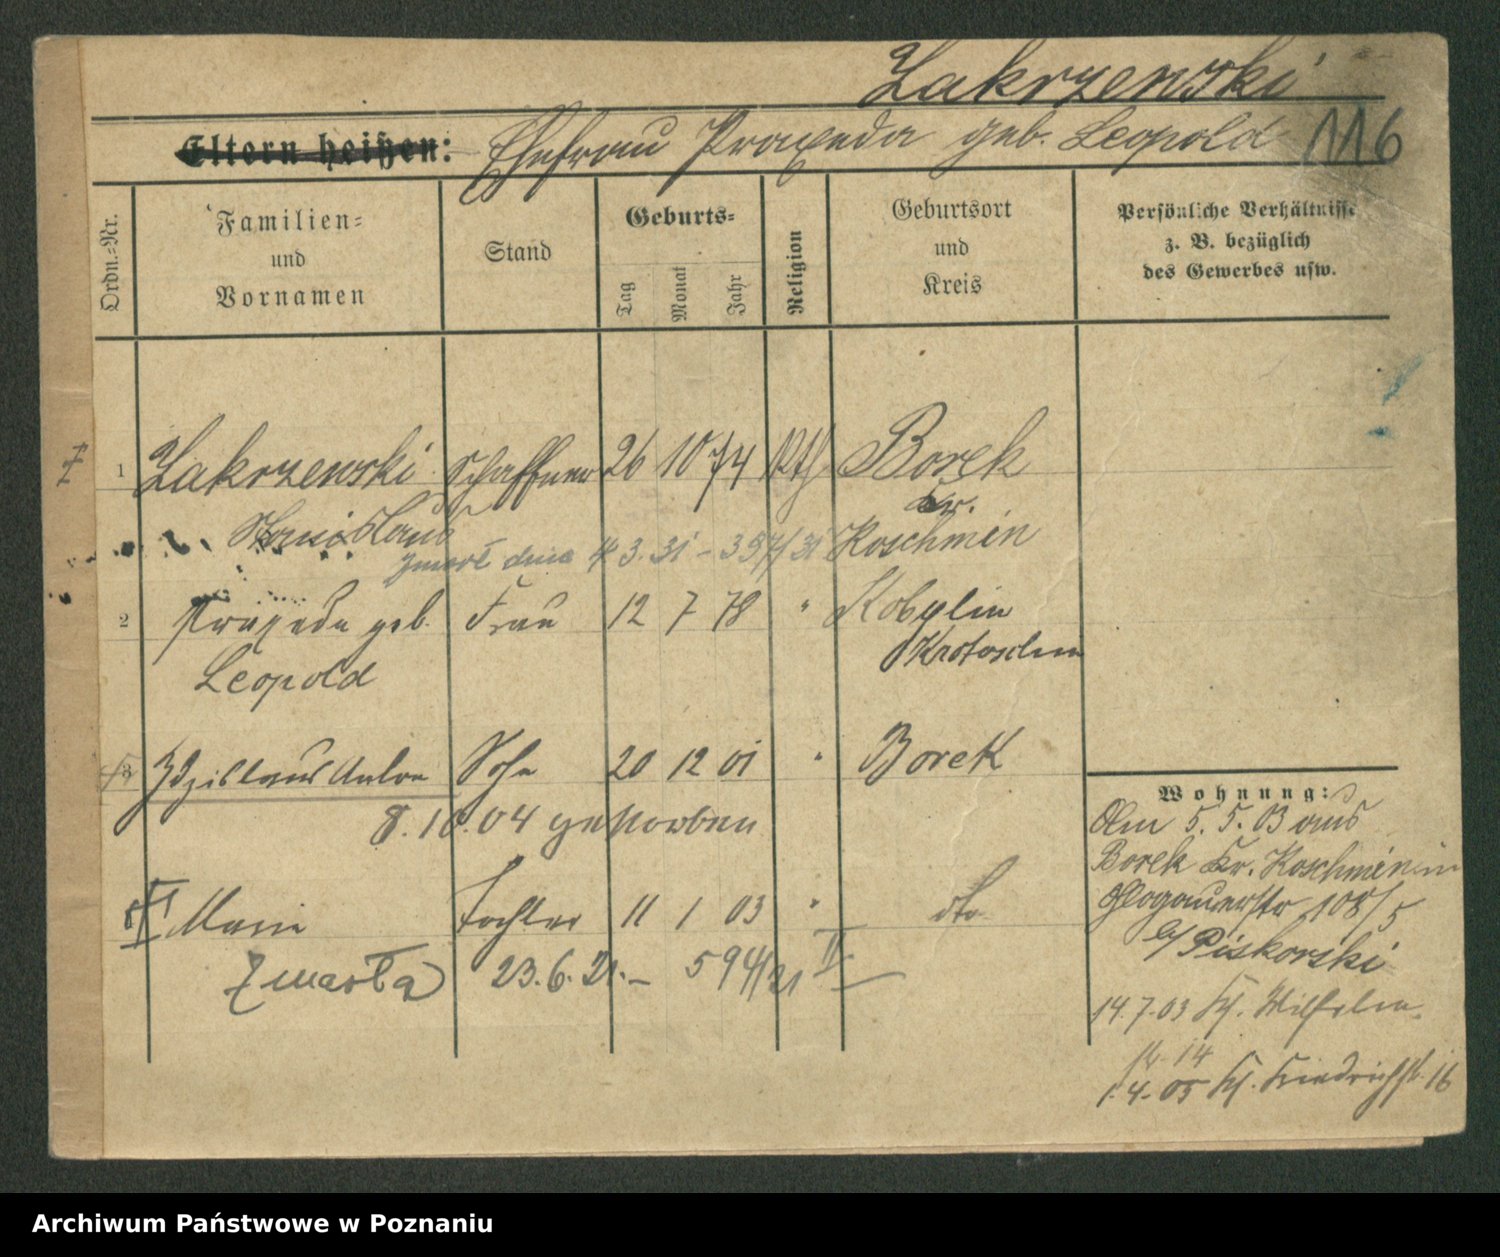 Zakrzewski
Eltern heißen: Ehefrau Praxeda geb. Leopold 116
Ordn.-Nr.
Familien-
und
Vornamen
Stand
Geburts-
Tag
Monat
Jahr
Religion
Geburtsort
und
Kreis
Persönliche Verhältnisse
z. B. bezüglich
des Gewerbes usw.
1 Zakrzewski Schaffner 26 10 74 kth Borek
Kr.
Stanislaus Koschmin
zmarł dnia 4 3. 31 - 397/31
2 Praxeda geb. Frau 12 7 78 " Kobylin
Krotoschin
Leopold
3 Zdzislaus Anton Sohn 20 12 01 " Borek
8.10.04 gestorben
Marie Tochter 11 1 03 " dto
Zmarła 23.6.21. - 594/21 II
Wohnung:
Am 5. 5. 03 aus
Borek Kr. Koschmin in
Glogauerstr 108/5
b/ Piskorski
14.7.03 Wilhelm
str. 14
1.4.05 Friedrichstr. 16
Archiwum Państwowe w Poznaniu